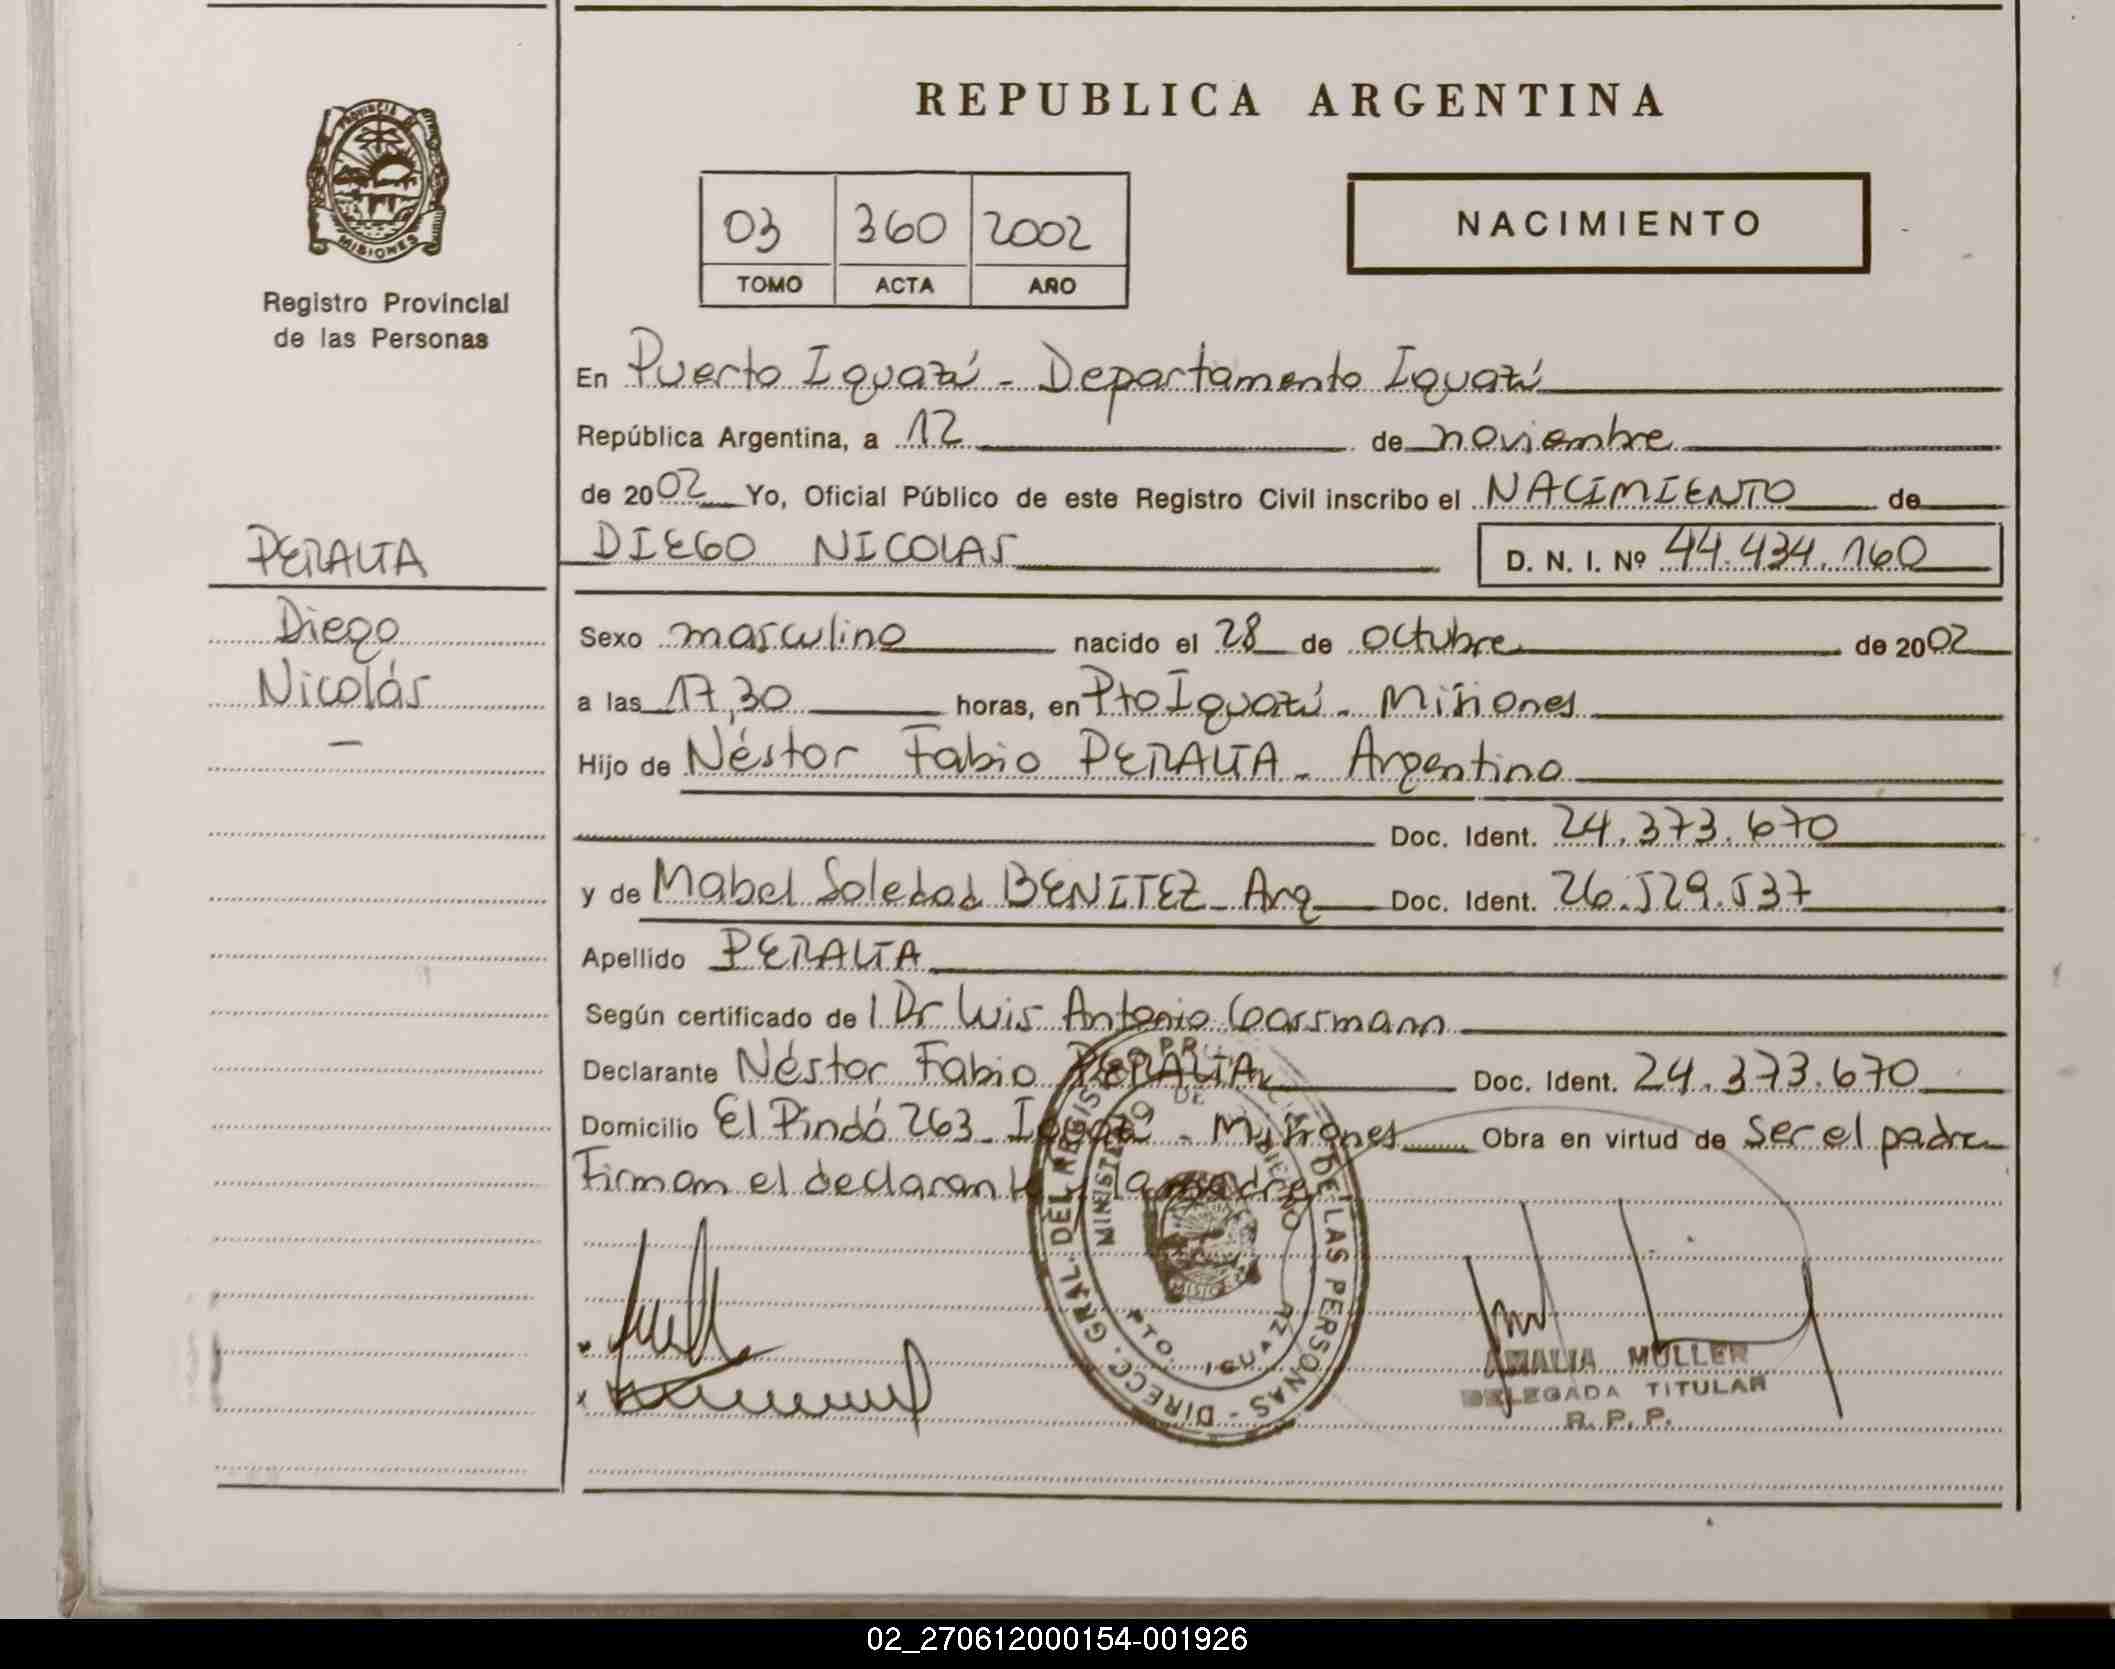 REPUBLICA ARGENTINA
PROVINCIA DE
MISIONES
Registro Provincial
de las Personas
03 360 2002
TOMO ACTA AÑO
NACIMIENTO
En Puerto Iguazú - Departamento Iguazú
República Argentina, a 12 de noviembre
de 2002 Yo, Oficial Público de este Registro Civil inscribo el NACIMIENTO de
DIEGO NICOLAS D. N. I. Nº 44.434.160
PERALTA
Diego
Nicolás
Sexo masculino nacido el 28 de octubre de 2002
a las 17,30 horas, en Pto Iguazú - Misiones
Hijo de Néstor Fabio PERALTA - Argentino
Doc. Ident. 24.373.670
y de Mabel Soledad BENITEZ - Arg Doc. Ident. 26.529.537
Apellido PERALTA
Según certificado de l Dr Luis Antonio
Declarante Néstor Fabio PERALTA Doc. Ident. 24.373.670
Domicilio El Pindó 263 - Iguazú - Misiones Obra en virtud de Ser el padre
Firman el declarante y la madre
DIRECC. GRAL. DEL REGISTRO PROVINCIAL DE LAS PERSONAS
MINISTERIO DE GOBIERNO
PTO. IGUAZU
AMALIA MULLER
DELEGADA TITULAR
R. P. P.
02_270612000154-001926